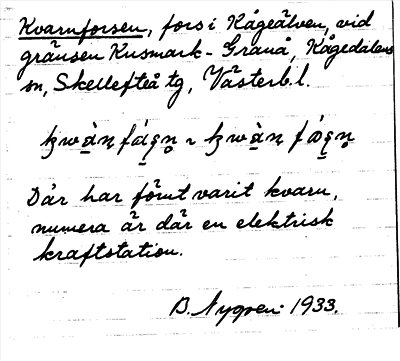 Kvarnforsen, fors i Kågeälven, vid
gränsen Kusmark - Granå, Kågedalens
sn, Skellefteå tg, Västerb. l.
Där har förut varit kvarn,
numera är där en elektrisk
kraftstation.
B. Nygren 1933.